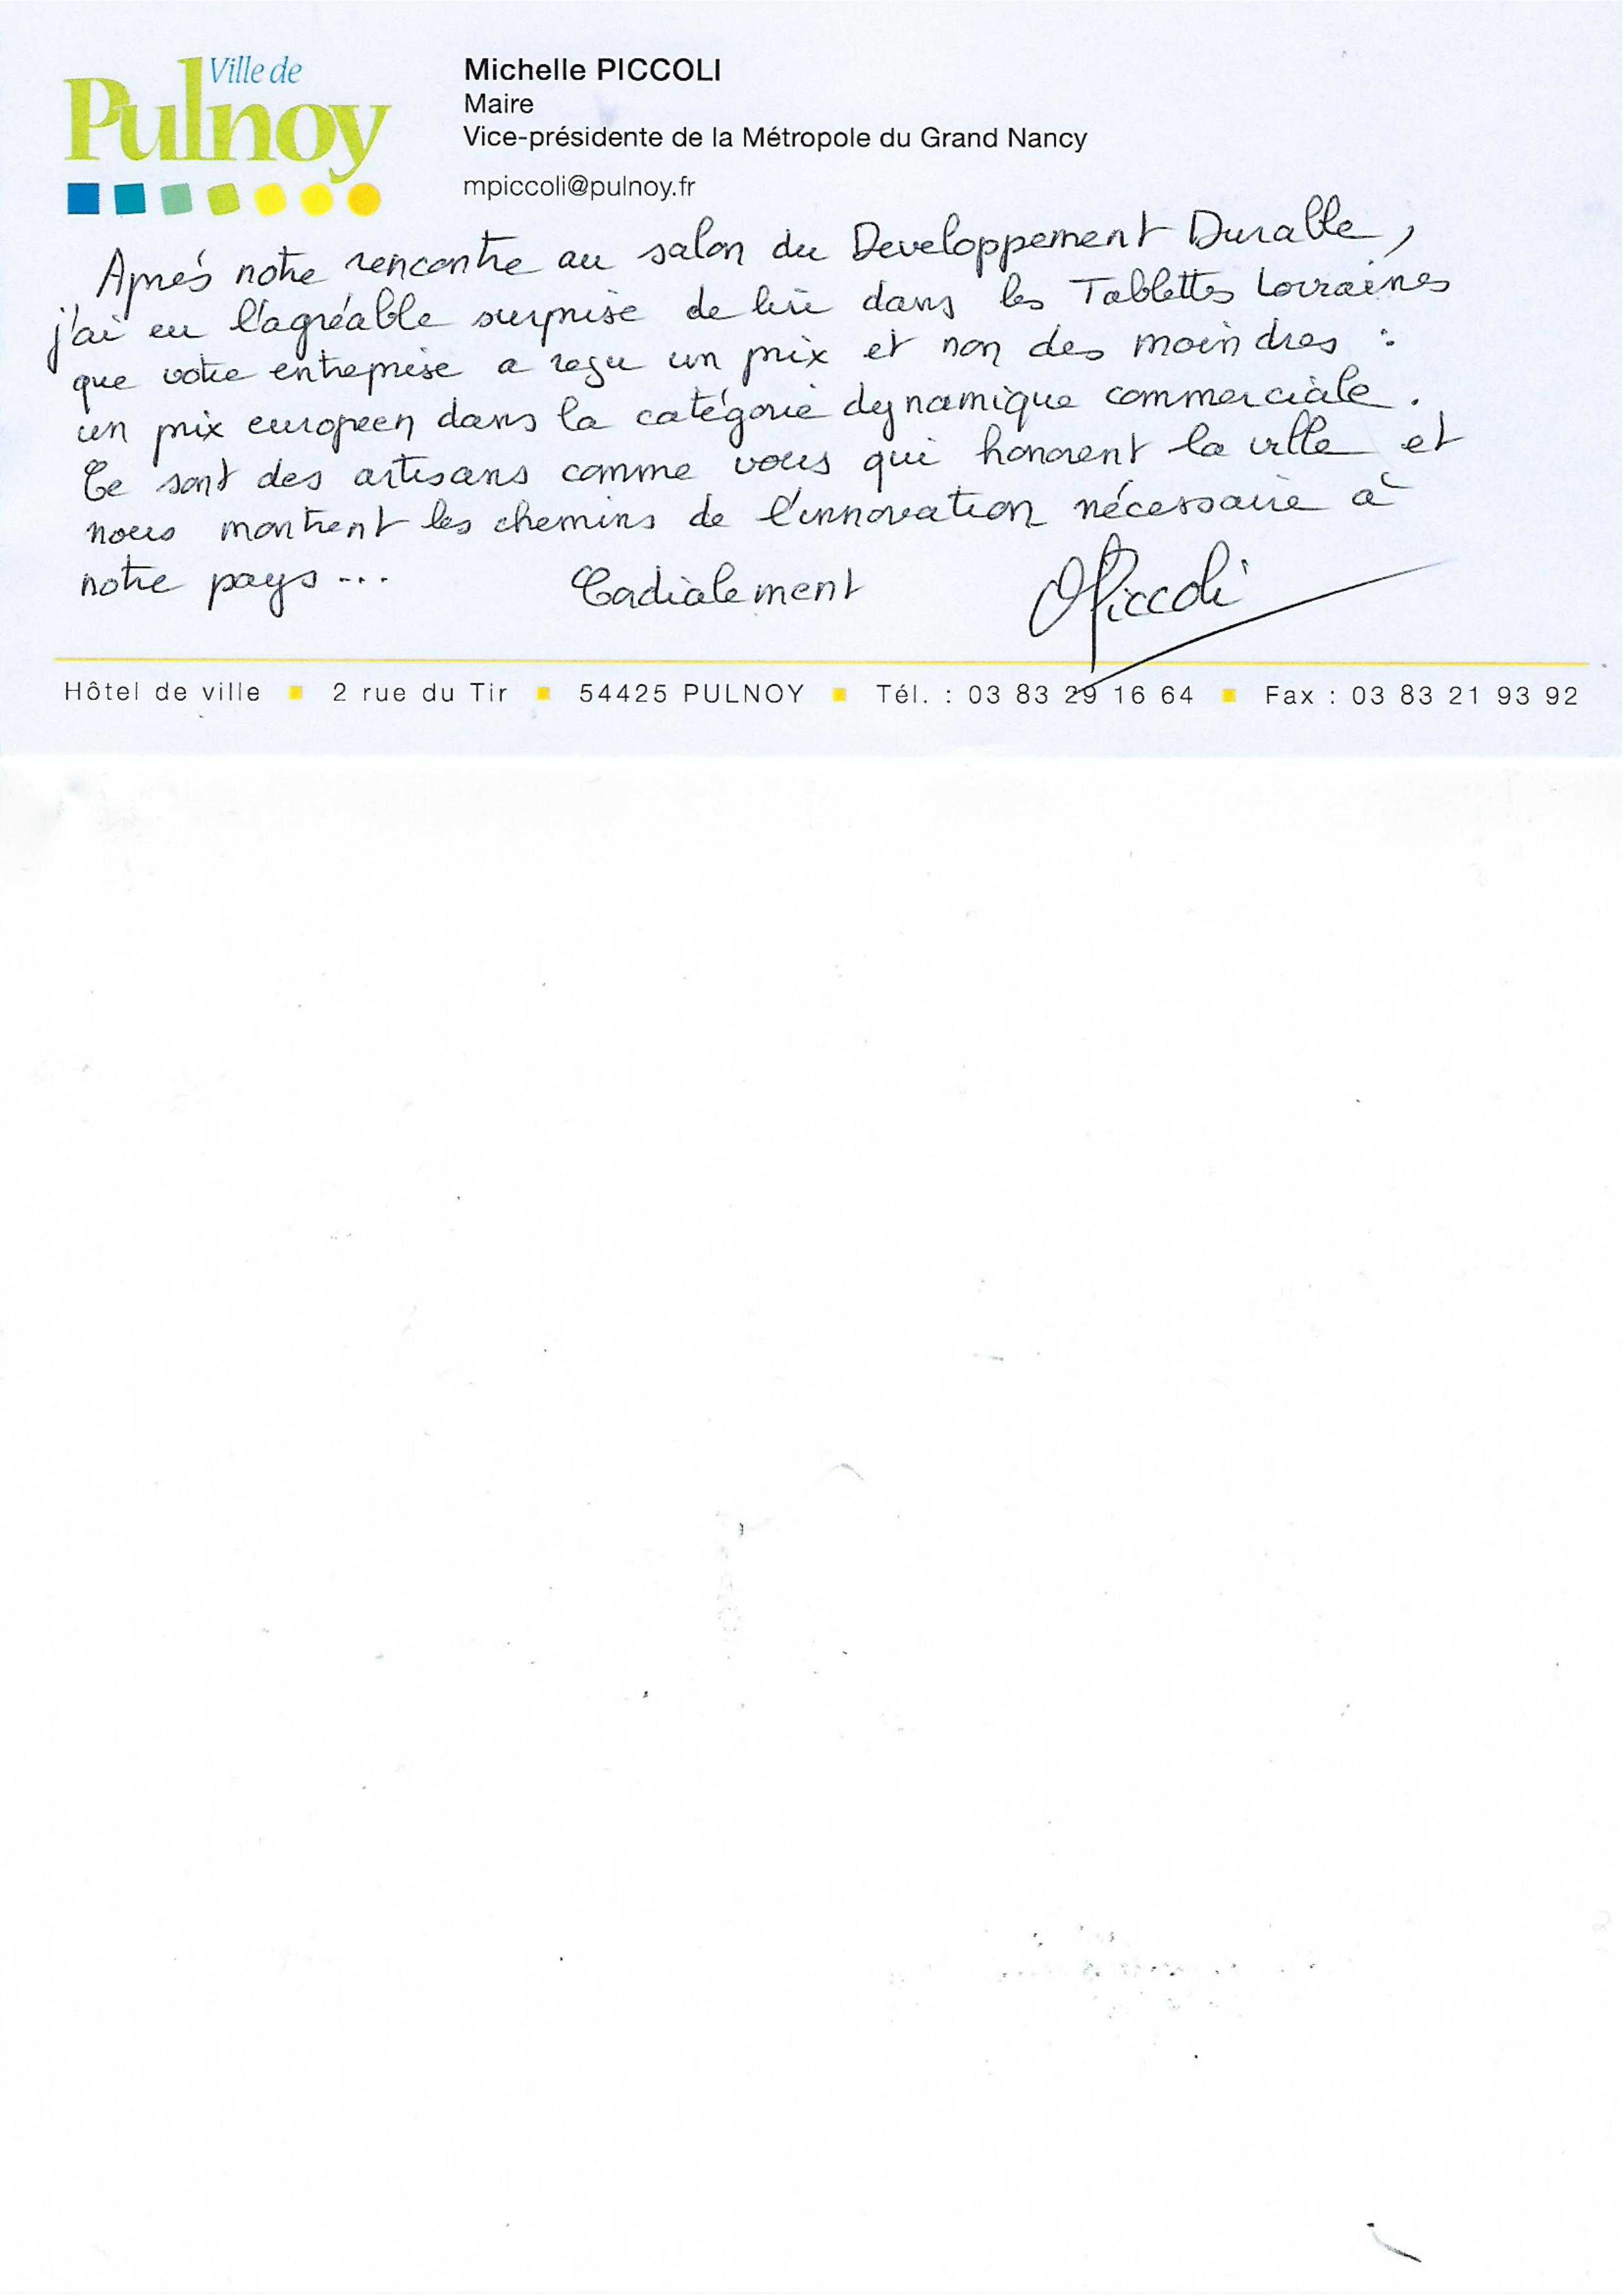 Ville de
Pulnoy
Michelle PICCOLI
Maire
Vice-présidente de la Métropole du Grand Nancy
mpiccoli@pulnoy.fr
Après notre rencontre au salon du Developpement Durable,
j'ai eu l'agréable surprise de lire dans les Tablettes Lorraines
que votre entreprise a reçu un prix et non des moindres :
un prix européen dans la catégorie dynamique commerciale.
Ce sont des artisans comme vous qui honorent la ville et
nous montrent les chemins de l'innovation nécessaire à
notre pays...
Cordialement
MPiccoli
Hôtel de ville ■ 2 rue du Tir ■ 54425 PULNOY ■ Tél. : 03 83 29 16 64 ■ Fax : 03 83 21 93 92